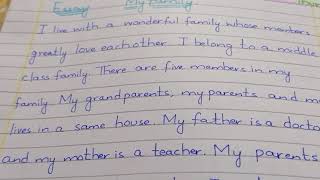 Essay My Family
I live with a wonderful family whose members
greatly love eachother. I belong to a middle
class family. There are five members in my
family. My grandparents, my parents and m
lives in a same house. My father is a docto
and my mother is a teacher. My parents